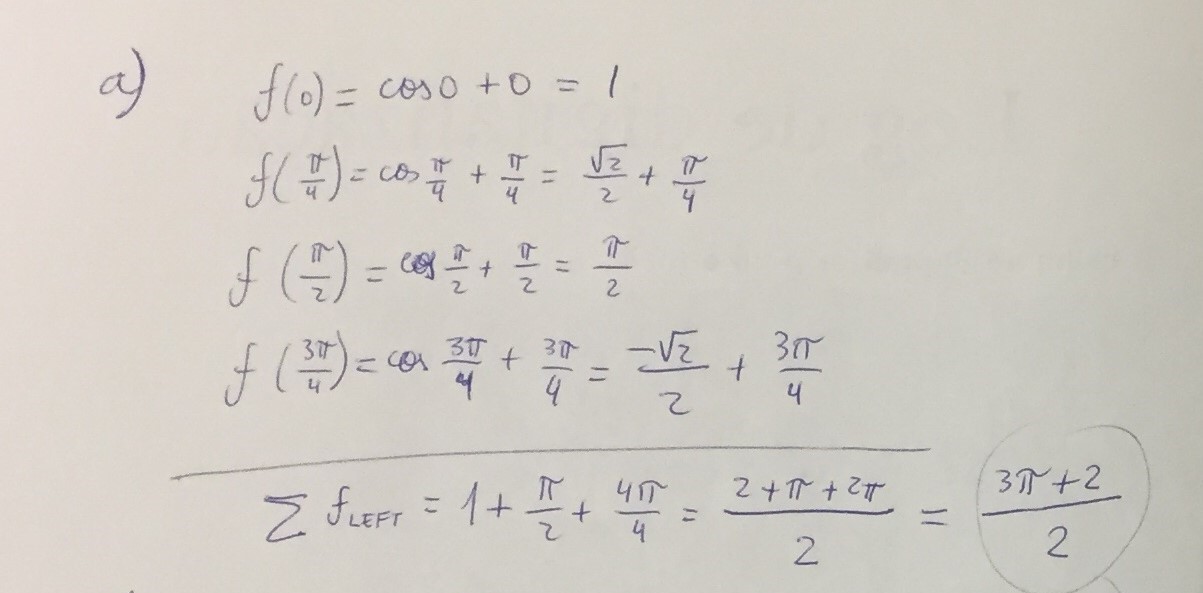 a) f(0) = cos0 + 0 = 1
f(π/4) = cos π/4 + π/4 = √2/2 + π/4
f(π/2) = cos π/2 + π/2 = π/2
f(3π/4) = cos 3π/4 + 3π/4 = -√2/2 + 3π/4
∑ f_LEFT = 1 + π/2 + 4π/4 = (2+π+2π)/2 = (3π+2)/2